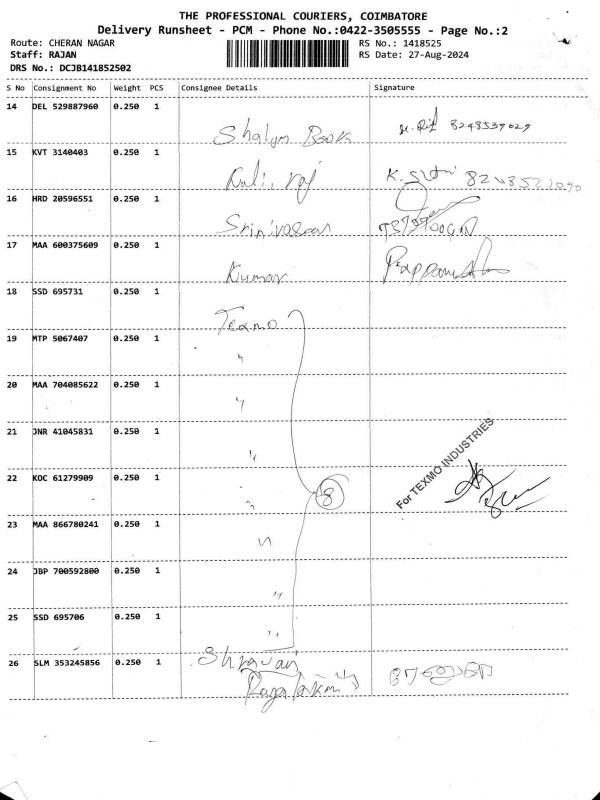 THE PROFESSIONAL COURIERS, COIMBATORE
Delivery Runsheet - PCM - Phone No.:0422-3505555 - Page No.:2
Route: CHERAN NAGAR
RS No.: 1418525
Staff: RAJAN
RS Date: 27-Aug-2024
DRS No.: DCJB141852502
S No Consignment No Weight PCS Consignee Details Signature
14 DEL 529887960 0.250 1
Shalom Book 8248539029
15 KVT 3140403 0.250 1
Kali raj
16 HRD 20596551 0.250 1
Srinivasan
17 MAA 600375609 0.250 1
Kumar
18 SSD 695731 0.250 1
Texmo
19 MTP 5067407 0.250 1
"
20 MAA 704085622 0.250 1
"
21 JNR 41045831 0.250 1
"
For TEXMO INDUSTRIES
22 KOC 61279909 0.250 1
" 8
23 MAA 866780241 0.250 1
"
24 JBP 700592800 0.250 1
"
25 SSD 695706 0.250 1
"
26 SLM 353245856 0.250 1